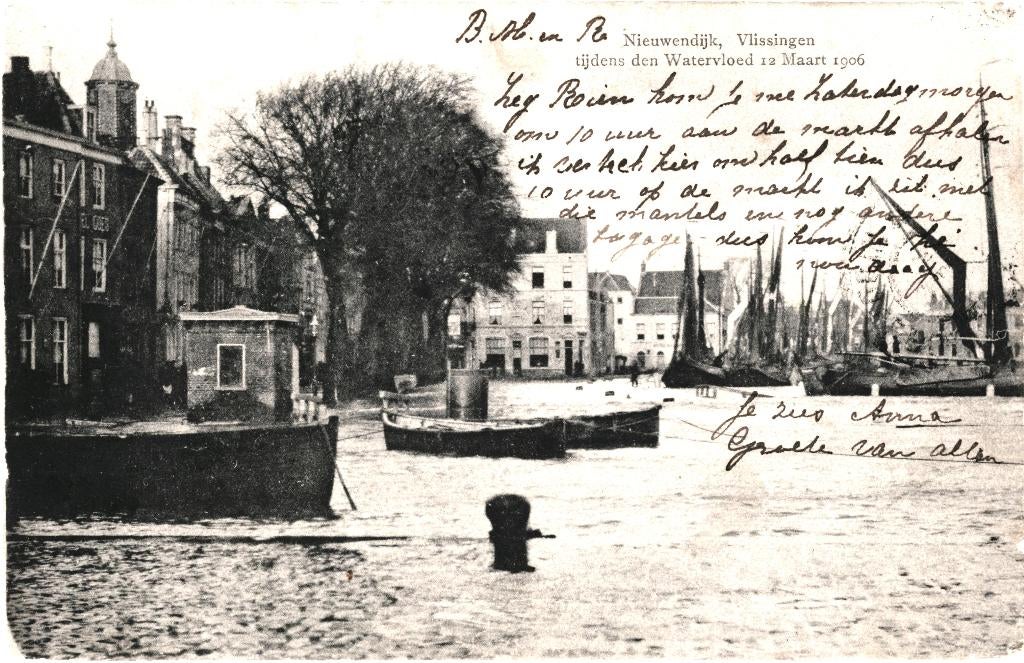 B. M. en R
Nieuwendijk, Vlissingen
tijdens den Watervloed 12 Maart 1906
Zeg Roien kom je me Zaterdagmorgen
om 10 uur aan de markt afhalen
ik vertrek hier om half tien dus
10 uur op de markt ik zit met
die mantels en nog andere
bagage dus kom je hé
vandaag
Je zus Anna
Groete van allen